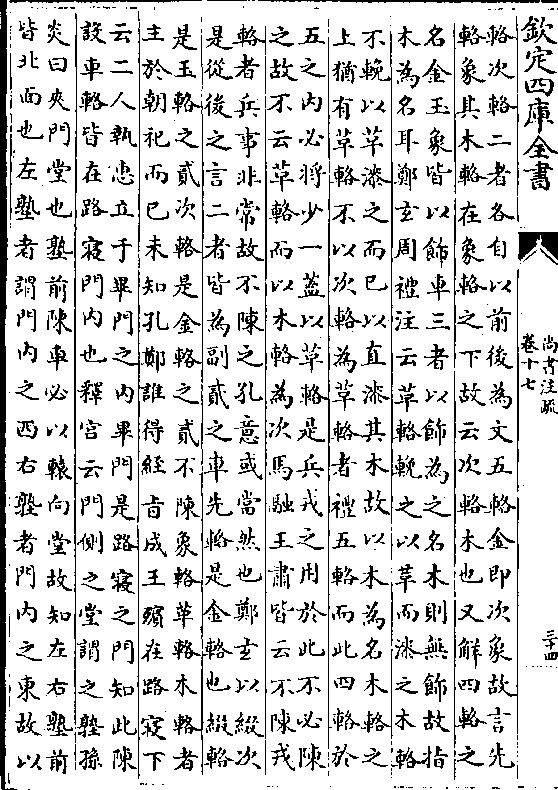 欽定四庫全書
尚書注疏
卷十七
三十四
輅次輅二者各自以前後為文五輅金即次象故言先
輅象其木輅在象輅之下故云次輅木也又解四輅之
名金玉象皆以飾車三者以飾為之名木則無飾故指
木為名耳鄭玄周禮注云革輅輓之以革而漆之木輅
不輓以革漆之而已以直漆其木故以木為名木輅之
上猶有革輅不以次輅為革輅者禮五輅而此四輅於
五之內必將少一蓋以革輅是兵戎之用於此不必陳
之故不云革輅而以木輅為次馬融王肅皆云不陳戎
輅者兵事非常故不陳之孔意或當然也鄭玄以綴次
是從後之言二者皆為副貳之車先輅是金輅也綴輅
是玉輅之貳次輅是金輅之貳不陳象輅革輅木輅者
主於朝祀而已未知孔鄭誰得經旨成王殯在路寢下
云二人執惠立于畢門之內畢門是路寢之門知此陳
設車輅皆在路寢門內也釋宮云門側之堂謂之塾孫
炎曰夾門堂也塾前陳車必以轅向堂故知左右塾前
皆北面也左塾者謂門內之西右塾者門內之東故以